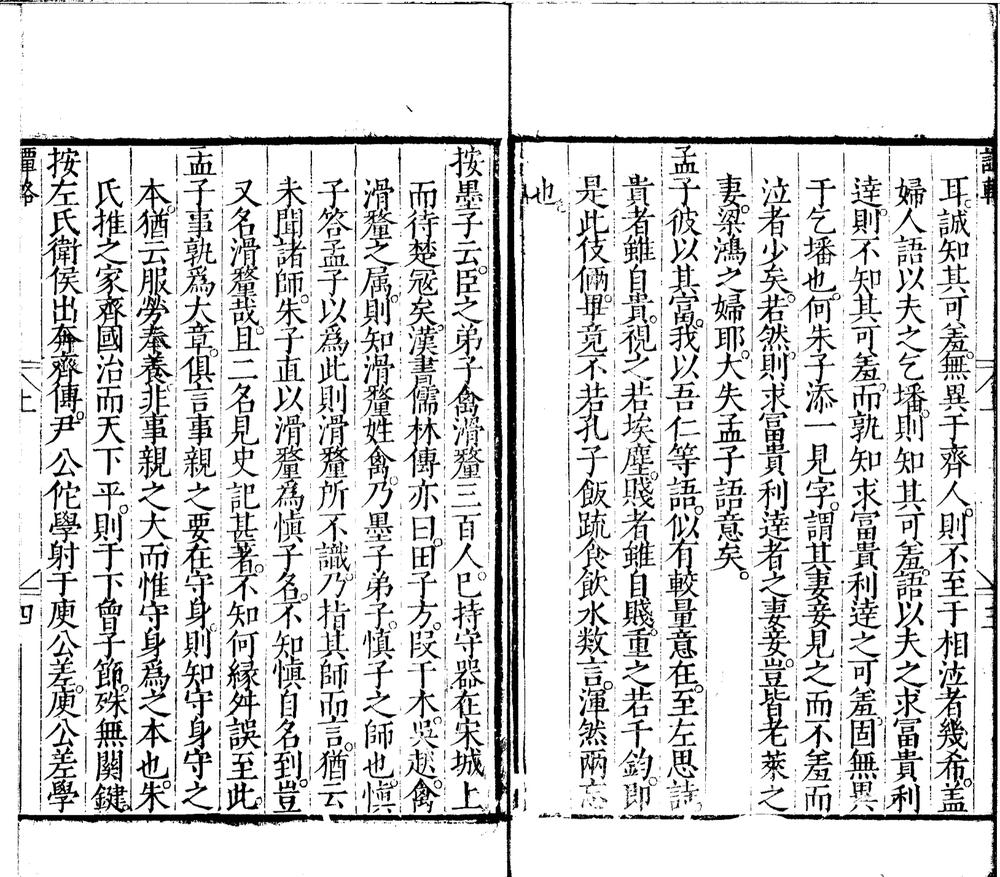 耳。誠知其可羞。無異于齊人。則不至于相泣者幾希。葢
婦人語以夫之乞墦。則知其可羞。語以夫之求冨貴利
達。則不知其可羞。而孰知求冨貴利達之可羞。固無異
于乞墦也。何朱子添一見字。謂其妻妾見之而不羞而
泣者少矣。若然。則求冨貴利達者之妻妾。豈皆老萊之
妻。梁鴻之婦耶。大失孟子語意矣。
孟子彼以其富。我以吾仁等語。似有較量意在。至左思詩。
貴者雖自貴。視之若埃塵。賤者雖自賤。重之若千鈞。即
是此伎倆。畢竟不若孔子飯疏食飲水数言。渾然兩忘
也。
按墨子云。臣之弟子禽滑釐三百人。已持守器在宋城上
而待楚冦矣。漢書儒林傳亦曰。田子方。叚干木。吳起。禽
滑釐之属。則知滑釐姓禽。乃墨子弟子。慎子之師也。慎
子答孟子以為此則滑釐所不識。乃指其師而言。猶云
未聞諸師。朱子直以滑釐為慎子名。不知慎自名到。豈
又名滑釐哉。且二名見史記甚著。不知何縁舛誤至此。
孟子事孰爲大章。俱言事親之要在守身。則知守身守之
本。猶云服勞奉養。非事親之大而惟守身爲之本也。朱
氏推之家齊國治而天下平。則于下曾子節。殊無関鍵
按左氏衛侯出奔齊傳。尹公佗學射于庾公差。庾公差學
譚輅
上
四